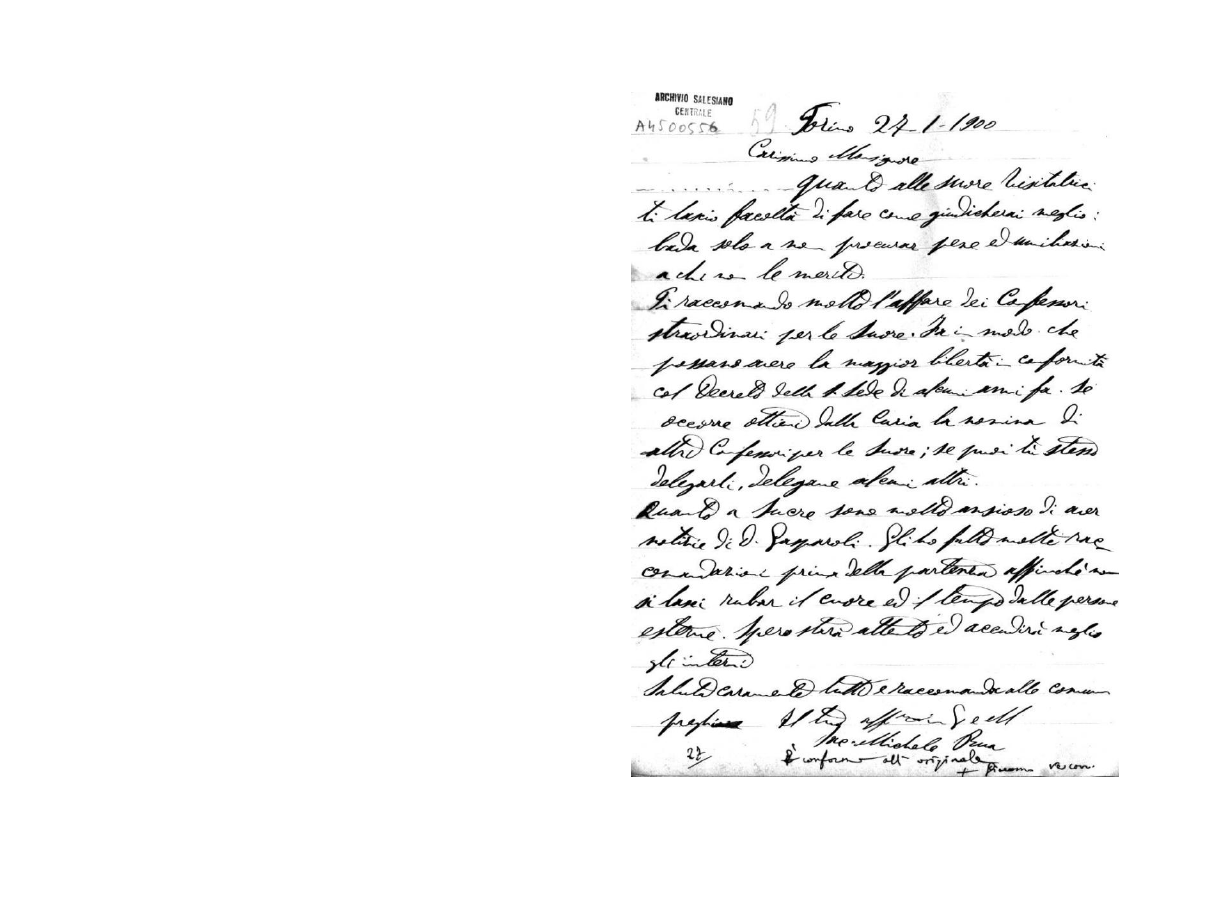 ARCHIVIO SALESIANO
CENTRALE
A4500556
59
Torino 27-1-1900
Carissimo Monsignore
............ Quanto alle suore Visitatrici
ti lascio facoltà di fare come giudicherai meglio:
bada solo a non procurar pene ed umiliazioni
a chi non le meritò.
Ti raccomando molto l'affare dei Confessori
straordinari per le Suore. Fa in modo che
possano avere la maggior libertà in conformità
col Decreto della S. Sede di alcuni anni fa. Se
occorre ottieni dalla Curia la nomina di
altri Confessori per le Suore; se puoi tu stesso
delegarli, delegane alcuni altri.
Quanto a Sucre sono molto ansioso di aver
notizie di D. Gasparoli. Gli ho fatto molte rac
comandazioni prima della partenza affinchè non
si lasci rubar il cuore ed il tempo dalle persone
esterne. Spero starà attento ed accudirà meglio
gli interni
Saluta caramente tutti e raccomanda alle comuni
preghiere Il tuo aff.mo in G e M
Sac. Michele Rua
27
È conforme all'originale
+ Giacomo vescov.